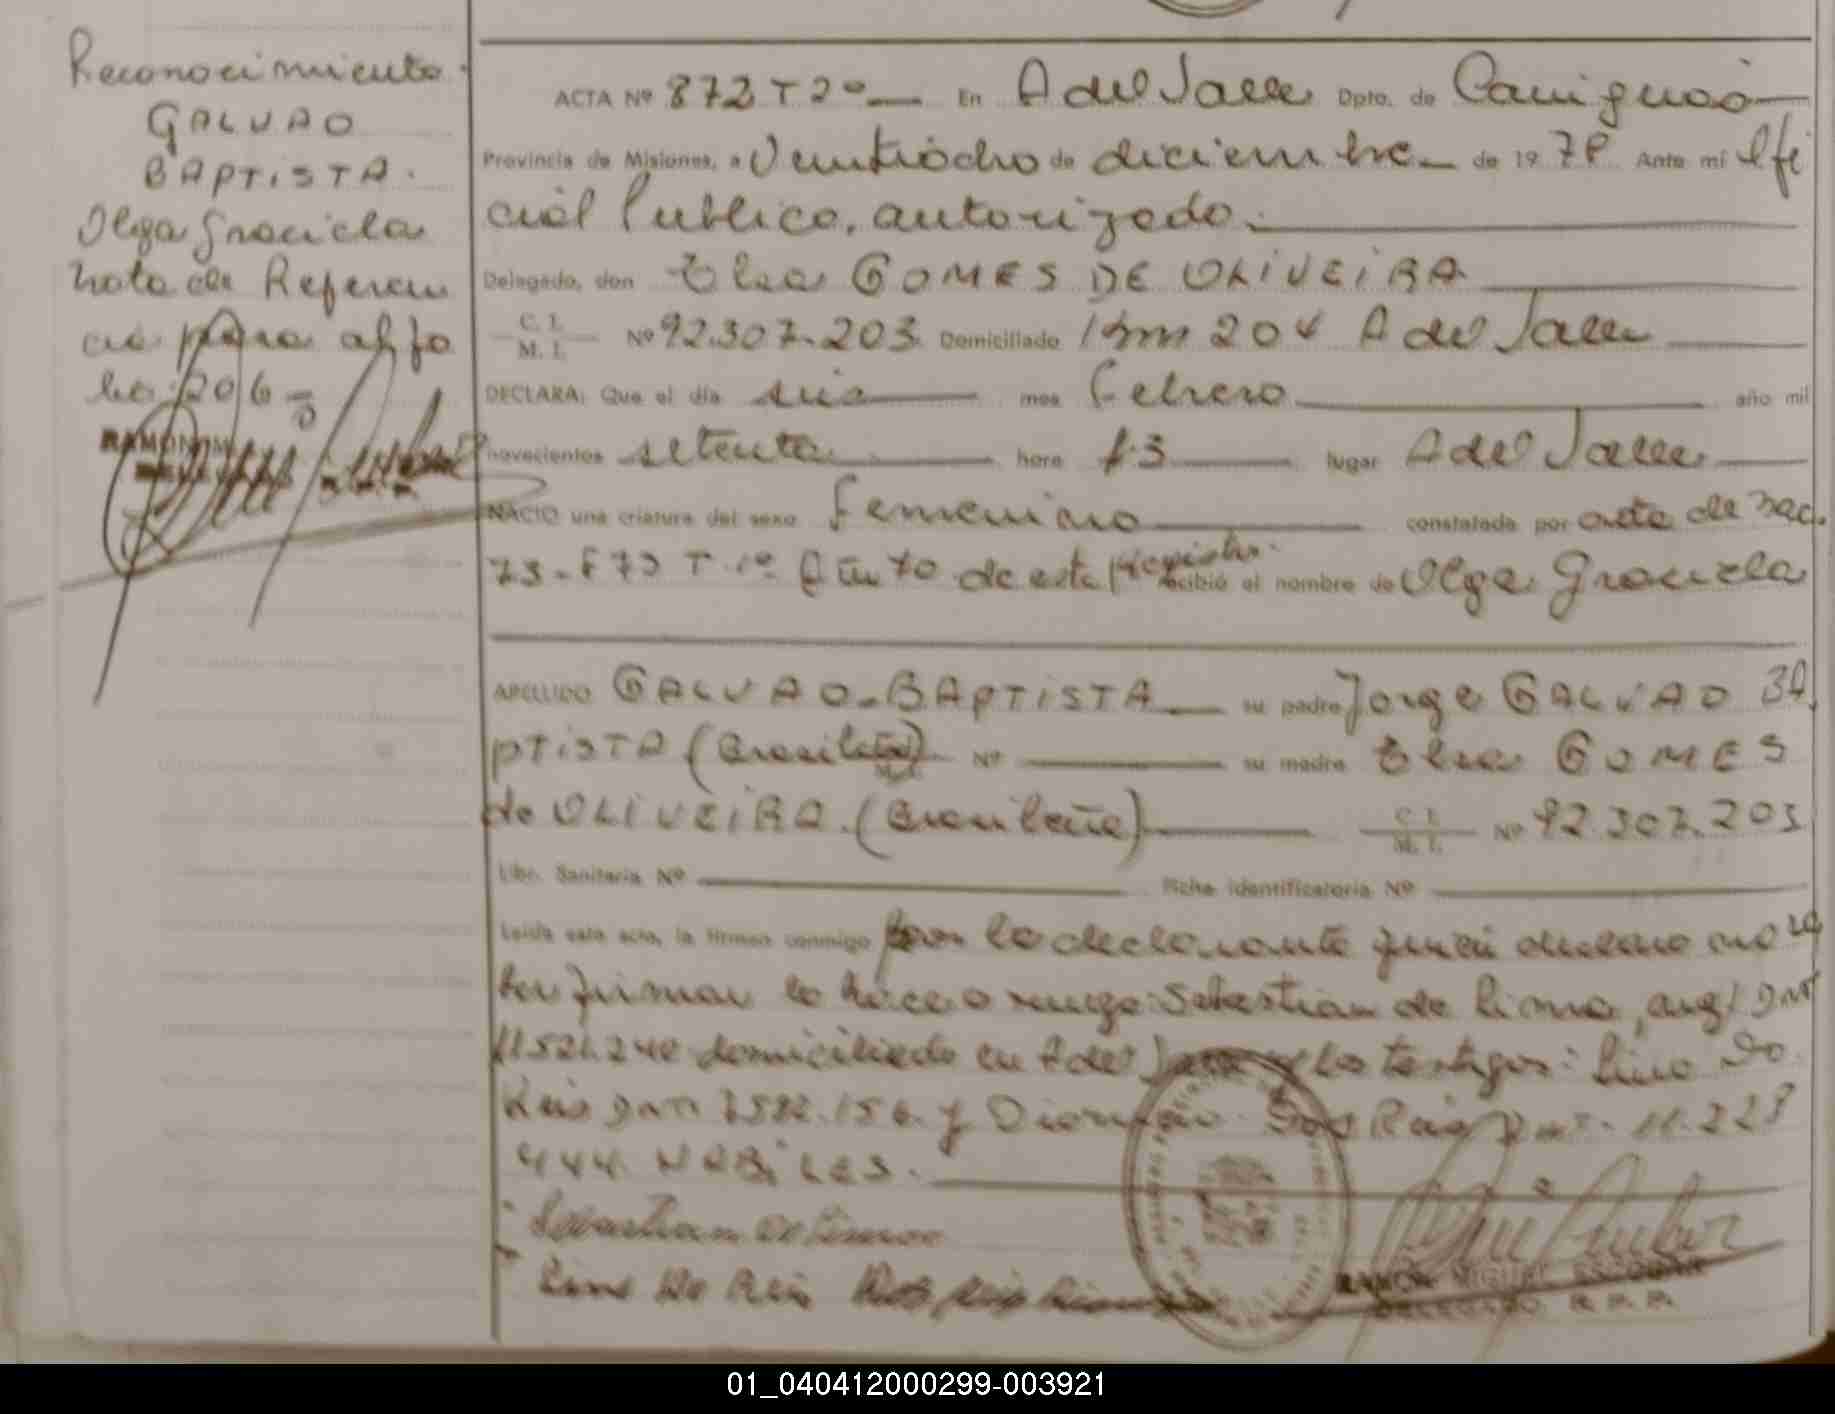 Reconocimiento.
GALVAO
BAPTISTA.
Olga Graciela
Nota de Referen
cia para al fo
lio 206
RAMON M
ACTA Nº 872 Tº 2º En A del Valle Dpto. de Cainguás
Provincia de Misiones, a Veintiocho de diciembre de 1978 Ante mí Ofi
cial Publico, autorizado.
Delegado, don Elsa GOMES DE OLIVEIRA
C. I.
M. I.
Nº 92.307.203 Domiciliado Km 204 A del Valle
DECLARA: Que el día seis mes Febrero año mil
novecientos setenta hora 13 lugar A del Valle
NACIO una criatura del sexo Femenino constatada por acta de nac.
73-873 T 1º Año 70 de este Registro. recibió el nombre de Olga Graciela
APELLIDO GALVAO-BAPTISTA su padre Jorge GALVAO BA
PTISTA (Brasileño) Nº su madre Elsa GOMES
de OLIVEIRA. (Brasileña) C. I. M. I. Nº 92.307.203
Libr. Sanitaria Nº Ficha identificatoria Nº
Leída esta acta, la firman conmigo por la declarante quien declaro no sa
ber firmar lo hace a ruego: Sebastian de Lima, arg/ DNI
11521.240 domiciliado en A del Valle y los testigos: Lino Do
Reis DNI 7582.156 y Dos Reis DNI. 11.228
444. HABILES.
Sebastian de Lima
Lino Do Reis Dos Reis
RAMON MIGUEL ESCOBAR
DELEGADO R. P. P.
01_040412000299-003921